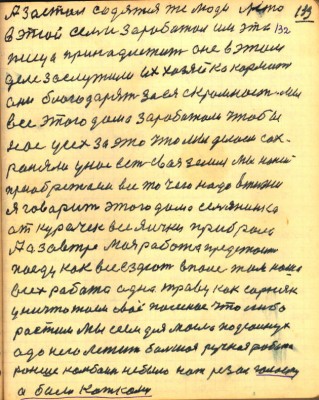 А за стол садятся те люди кто 133
в этой семьи заработал им эта 132
пища принадлежит оне в этом
деле заслужили их хозяйка кормит
ани благодарят за ея скромность мы
все этого дома заработали чтобы
нас усех за это что мы делаем сах
ранять у нас есть свая земля мы
приобретаем все то чего надо в жизни
Я говарит этого дома семянинка
от курачек все яички прибрала
А на завтре моя работа предстоит
поеду как все ездют в поле там наша
всех работа одна траву как сорняк
уничтожаем своё посеное что либо
растим мы сеем для масла подсолнух
а до него летит большая ручная работа
раньще комбайн небыло нож резал головку
а били каткому